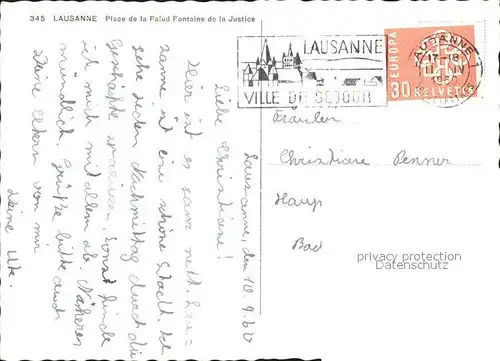 345 LAUSANNE Place de la Palud Fontaine de la Justice
LAUSANNE
VILLE DE SEJOUR
LAUSANNE 1
EUROPA
30 HELVETIA
Lausanne, den 10.9.60
Liebe Christiane!
Hier ist es ganz nett. Lau-
sanne ist eine schöne Stadt. Ich
sehe jeden Nachmittag durch die
Geschäfte Sonst finde
ich mich mit allem ab. Näheres
mündlich. Grüße bitte auch
Deine Eltern von mir
Deine Ute
Fräulein
Christiane Penner
Haup
Bad
persönlicher
Datenschutz